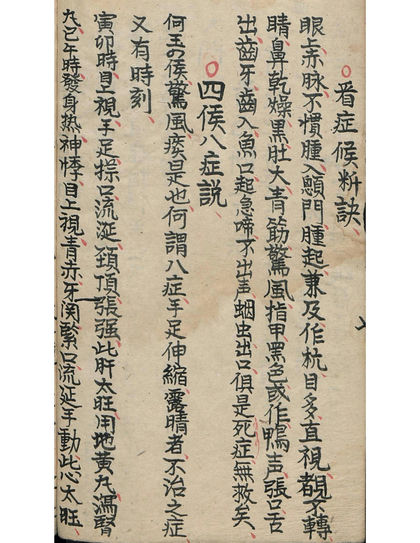 看症候断訣
眼上赤脉不慣腫入顖門腫起兼及作杭目多直視覩不轉
睛鼻乾燥黒肚大青筋驚風指甲黑色或作鴨声張口舌
出齒牙齒入魚口起急啼不出声蛔虫出口俱是死症無救矣
四候八症説
何玉候驚風痰是也何謂八症手足伸縮露晴者不治之症
又有時刻
寅卯時目上視手足探口流涎頚頂張强此肝太旺用地黄丸瀉腎
九巳午時發身热神悸目上視青赤牙関緊口流延手動此心太旺